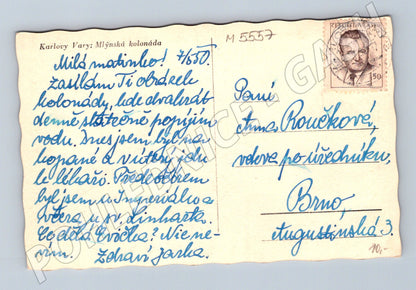 M 5557
Karlovy Vary: Mlýnská kolonáda
Milá maminko! 7/6 50.
zasílám Ti obrázek
kolonády, kde dvakrát
denně statečně popíjím
vodu. Dnes jsem byl na
koupané a v úterý jdu
k lékaři. Předevčírem
byl jsem u Imperiálu a
včera u sv. Linharta.
Co dělá Evička? Nic ne-
vím. Zdraví Jarka.
ČESKOSLOVENSKO
1
50
Paní
Anna Roučková,
vdova po úředníku,
Brno,
Augustinská 3.
10,-